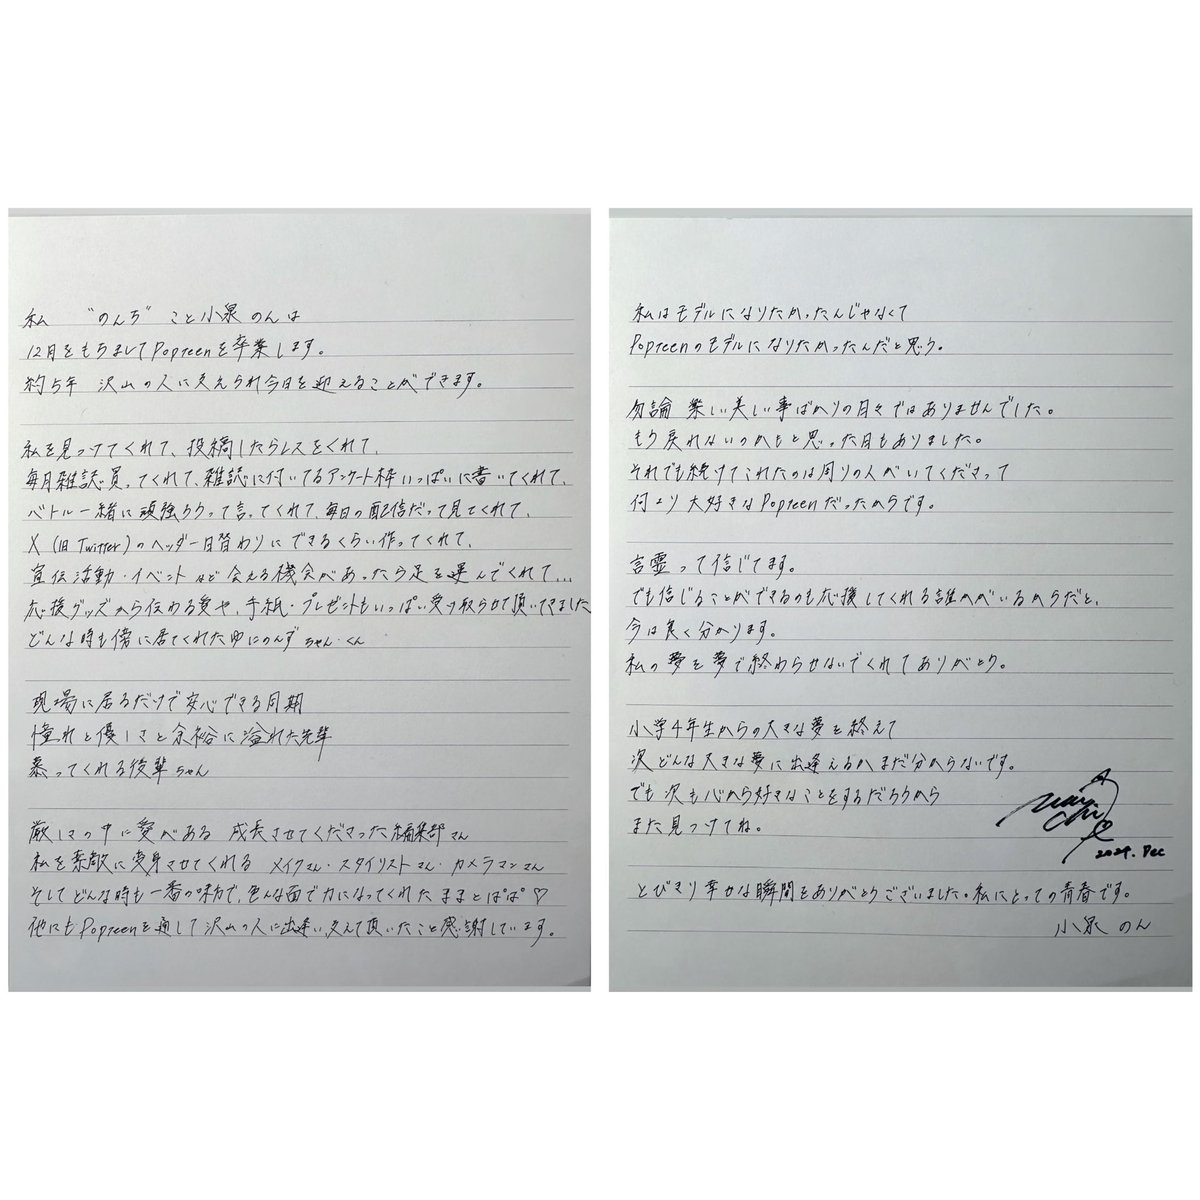 私 “のんち” こと小泉 のんは
12月をもちましてPopteenを卒業します。
約5年 沢山の人に支えられ今日を迎えることができます。
私を見つけてくれて、投稿したらレスをくれて、
毎月雑誌買ってくれて、雑誌に付いてるアンケート枠いっぱいに書いてくれて、
バトル一緒に頑張ろうって言ってくれて、毎日の配信だって見てくれて、
X（旧Twitter）のヘッダー日替わりにできるくらい作ってくれて、
宣伝活動・イベントなど会える機会があったら足を運んでくれて...
応援グッズから伝わる愛や、手紙・プレゼントもいっぱい受け取らせて頂いてきました
どんな時も傍に居てくれたゆにのんず ちゃん・くん
現場に居るだけで安心できる同期
憧れと優しさと余裕に溢れた先輩
慕ってくれる後輩ちゃん
厳しさの中に愛がある 成長させてくださった編集部さん
私を素敵に変身させてくれる メイクさん・スタイリストさん・カメラマンさん
そしてどんな時も一番の味方で、色んな面で力になってくれた ままとぱぱ♡
他にもPopteenを通して沢山の人に出逢い、支えて頂いたこと感謝しています。
私はモデルになりたかったんじゃなくて
Popteenのモデルになりたかったんだと思う。
勿論 楽しい美しい事ばかりの日々ではありませんでした。
もう戻れないのかもと思った日もありました。
それでも続けてこれたのは周りの人がいてくださって
何より大好きなPopteenだったからです。
言霊って信じてます。
でも信じることができるのも応援してくれる誰かがいるからだと、
今は良く分かります。
私の夢を夢で終わらせないでくれてありがとう。
小学4年生からの大きな夢を終えて
次どんな大きな夢に出逢えるかまだ分からないです。
でも次も心から好きなことをするだろうから
また見つけてね。
2024. Dec
とびきり幸せな瞬間をありがとうございました。私にとっての青春です。
小泉 のん